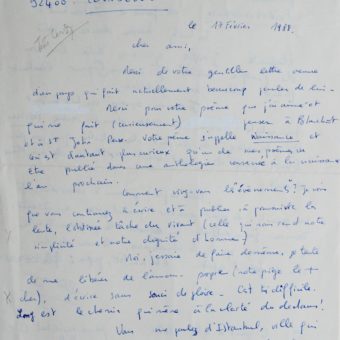 92400
le 17 Février 1988.
cher ami,
Merci de votre gentille lettre venue
d'un pays qui fait actuellement beaucoup parler de lui.
Merci pour votre poème que j'aime et
qui me fait (curieusement) penser à Blanchot
et à St John Perse. Votre poème s'appelle Naissance et
est d'autant plus curieux qu'un de mes poèmes va
être publié dans une anthologie consacrée à la naissance
l'an prochain.
Comment vivez-vous les "évènements"? Je vois
que vous continuez à écrire et à publier, à poursuivre la
lente, tâche du vivant (celle qui nous rend notre
simplicité et notre dignité d'homme)
Moi, j'essaie de faire de même, je tente
de me libérer de l'amour-propre (notre piège le +
cher), d'écrire sans souci de gloire. C'est très difficile.
Long est le chemin qui mène à la clarté du dedans!
Vous me parlez d'Istanbul, ville qui